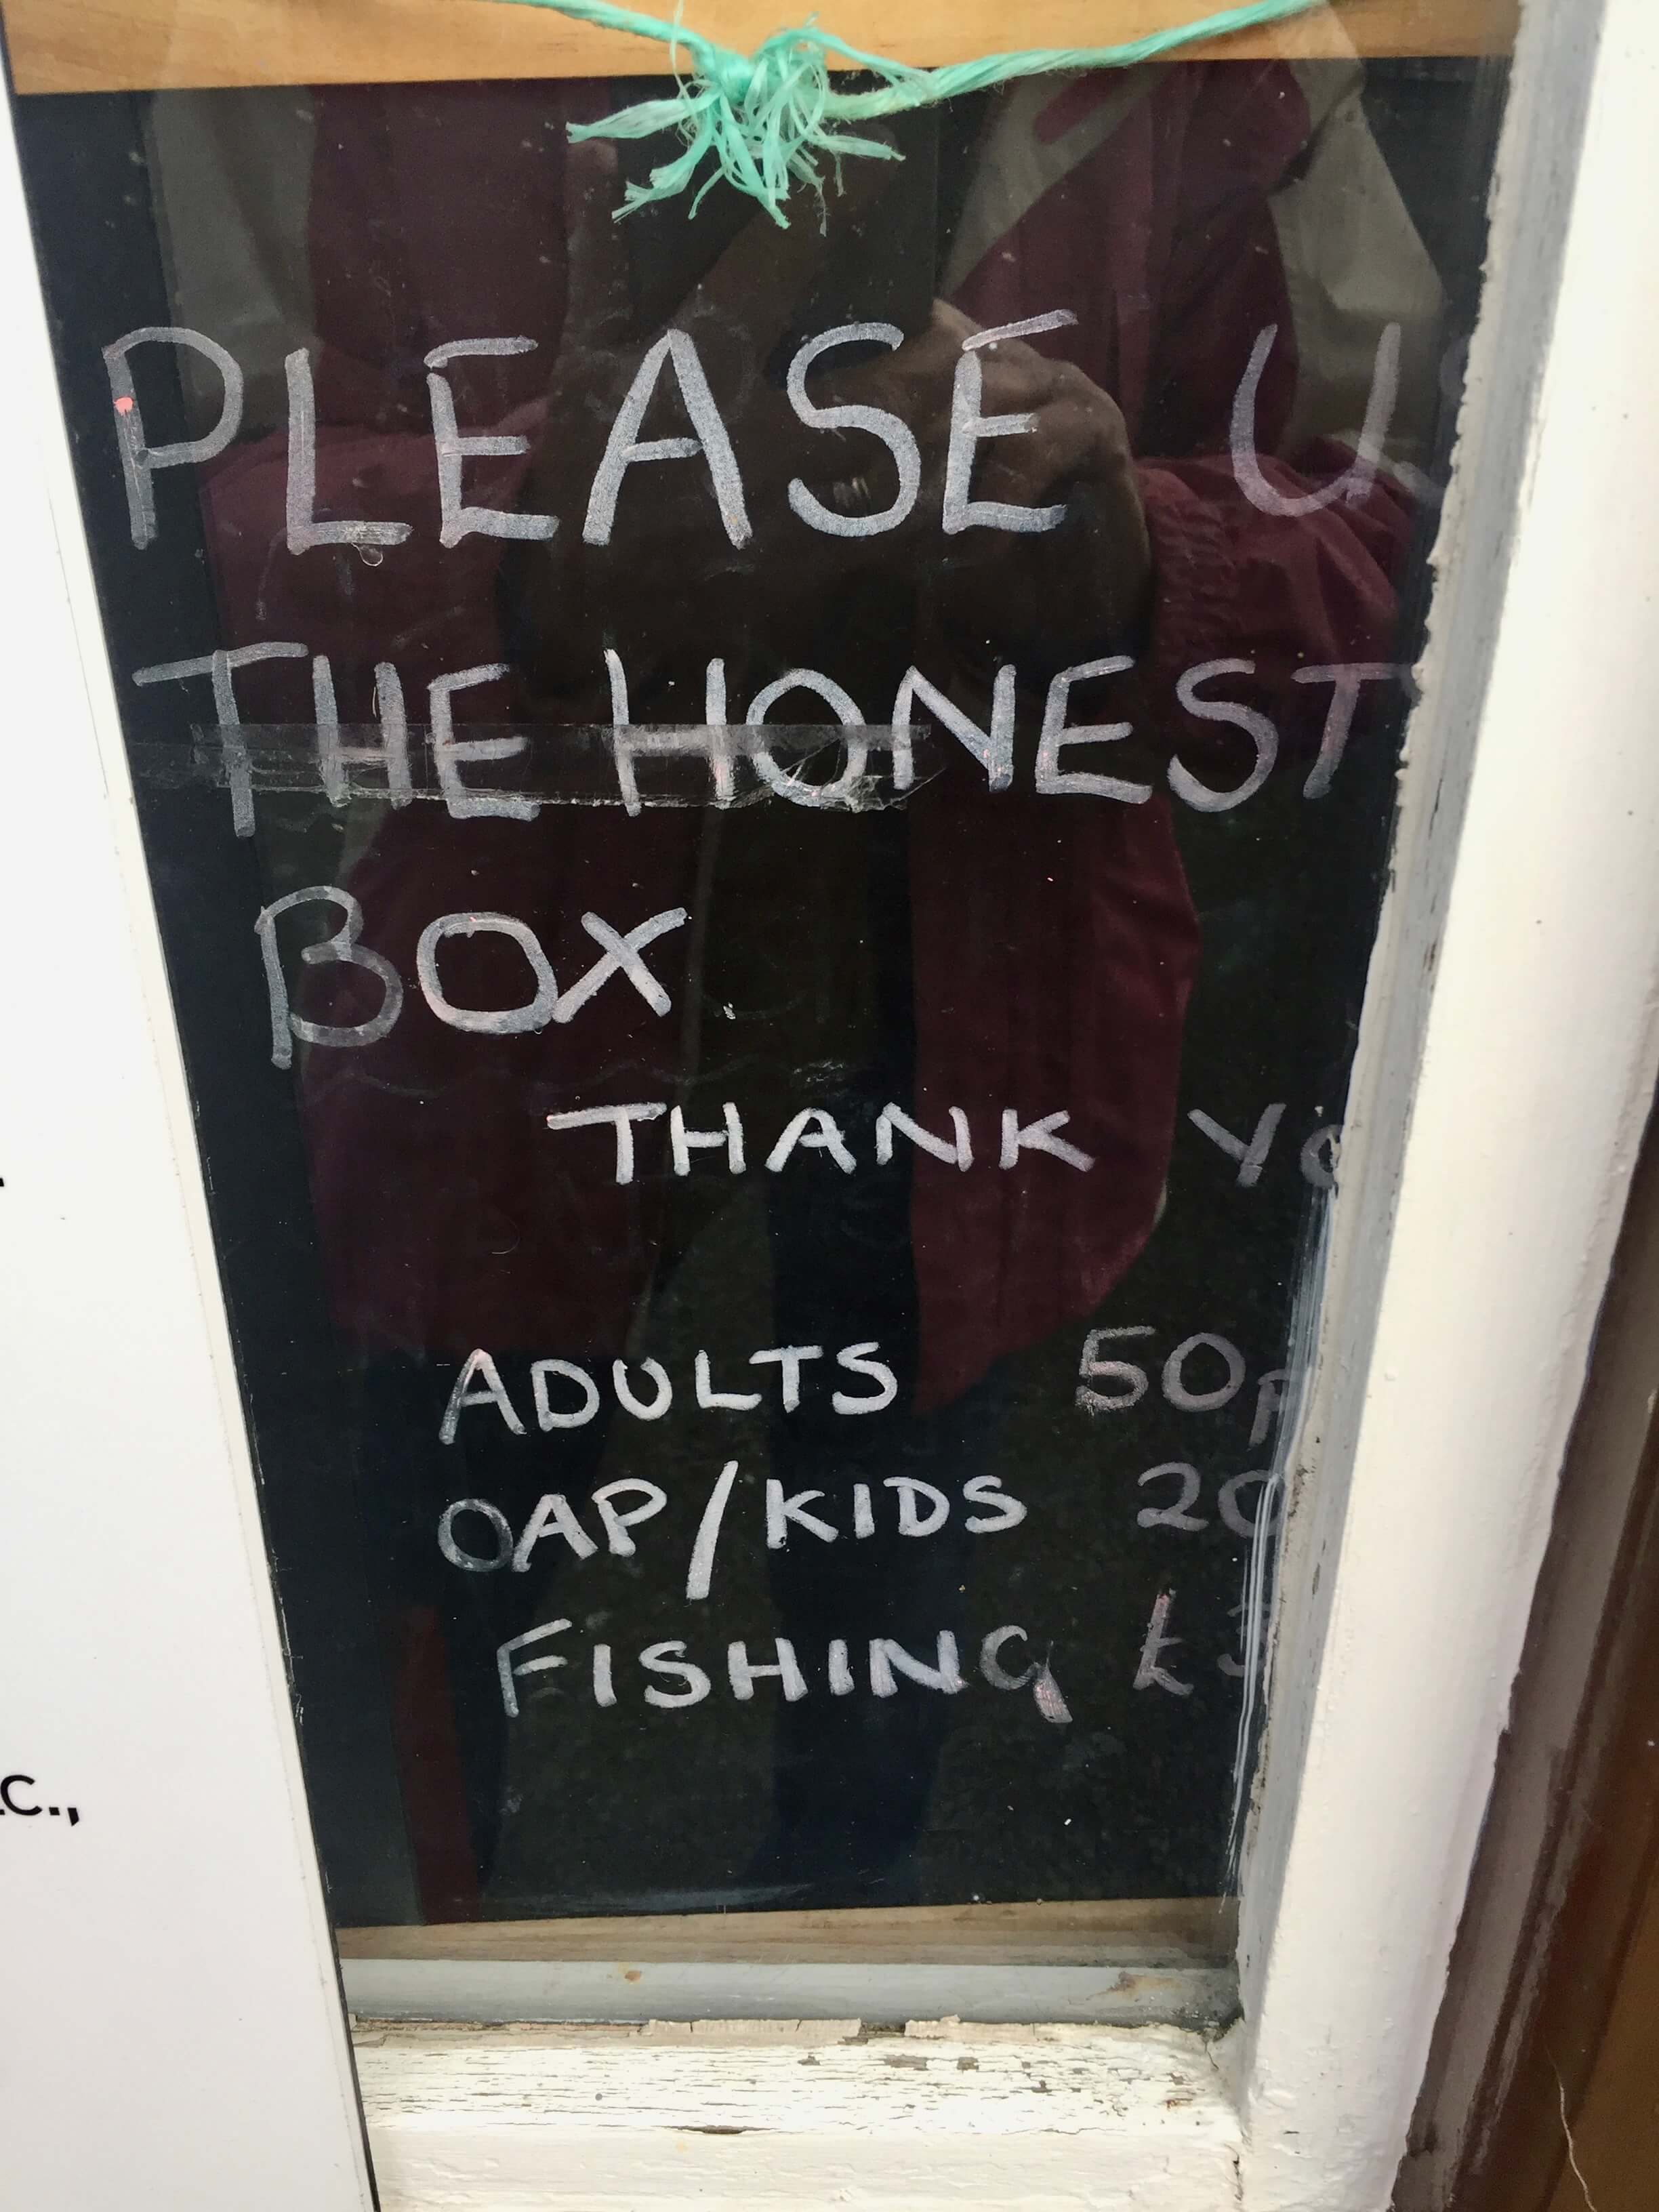 PLEASE U
THE HONEST
BOX
THANK YO
ADULTS 50p
OAP/KIDS 20
FISHING £3
C.,